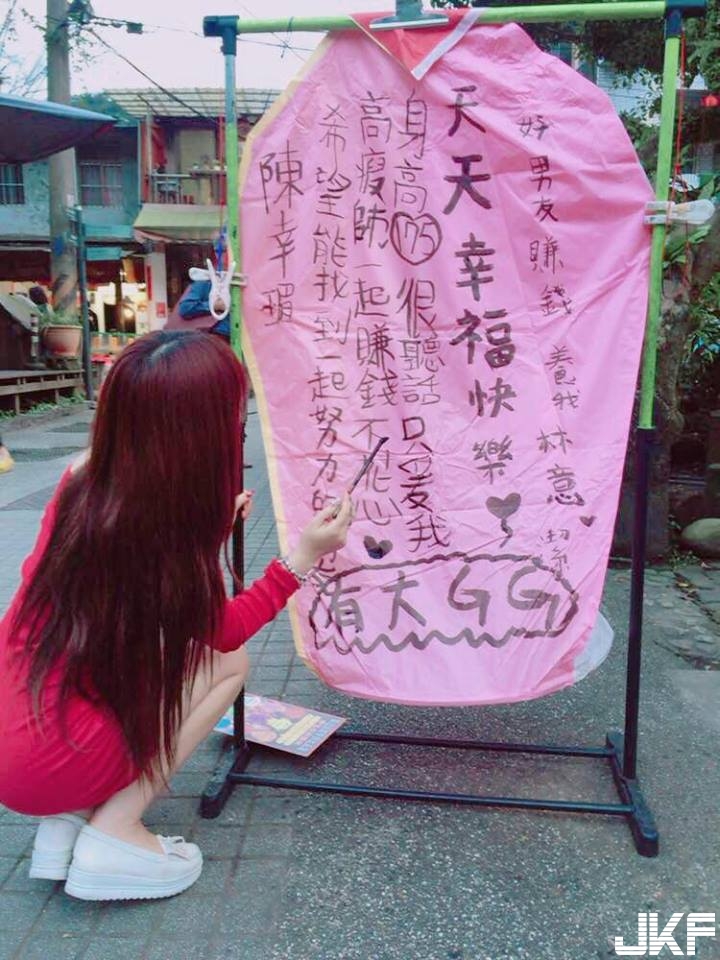 好男友賺錢養我林意
天天幸福快樂
身高175很聽話只愛我
高瘦帥一起賺錢不花心
希望能找到一起努力的
陳幸瑕
有大GG
JKF